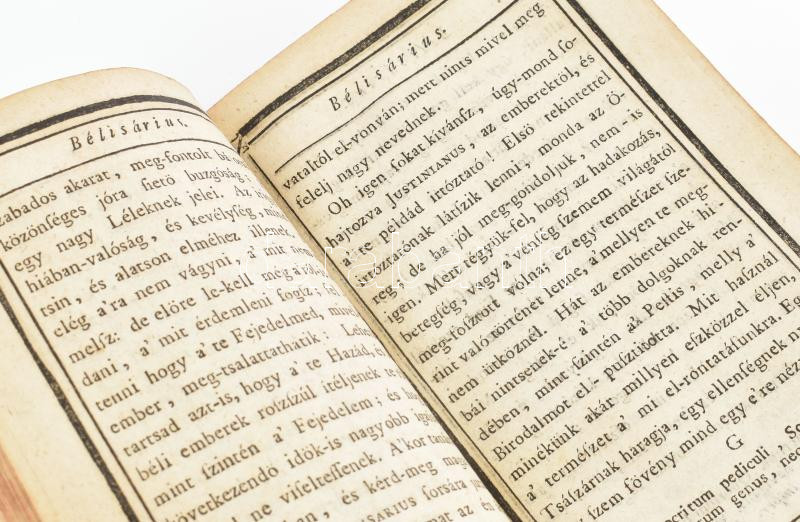 Bélisárius.
zabados akarat, meg-fontolt bá
közönſéges jóra ſiető buzgóság;
egy nagy Léleknek jelei. Az
hiában-valóság, és kevélyſég,
tsin, és alatson elméhez illenek,
elég a'ra nem vágyni, a' mit
melſz: de előre le-kell
dani, a' mit érdemleni fogſz.
tenni hogy a' te Fejedelmed,
ember, meg-tsalattathatik:
tartsad azt-is, hogy a' te Hazád,
béli emberek roſzſzúl itéljenek
mint ſzintén a' Fejedelem; és
következendő idők-is nagyobb
ne viſelteſſenek. A'kor
, és kérd-meg
SARIUS forsára
Bélisárius.
vataltól el-vonván; mert nints mivel meg
felelj nagy nevednek.
Oh igen ſokat kivánſz, úgy-mond ſo-
hajtozva JUSTINIANUS, az emberektől, és
a' te példád irtoztató! Első tekintettel
irtoztatónak látſzik lenni, monda az Ö-
reg; de ha jól meg-gondoljuk, nem-is
igen. Mert tégyük-fel, hogy az hadakozás,
beregſég, vagy a' vénſég ſzemem világától
meg-foſztott volna; az egy természet ſze-
rint való történet lenne, a' mellyen te meg-
nem ütköznél. Hát az embereknek hi-
bái nintsenek-é a' több dolgoknak ren-
dében, mint ſzintén a' Peſtis, melly a'
Birodalmot el-puſztította. Mit haſznál
minékünk akár millyen eſzközzel éljen,
a' természet a' mi el-rontatáſunkra. Eg
Tsáſzárnak haragja, egy ellenségnek n
ſzem fövény mind egy e're néz
G